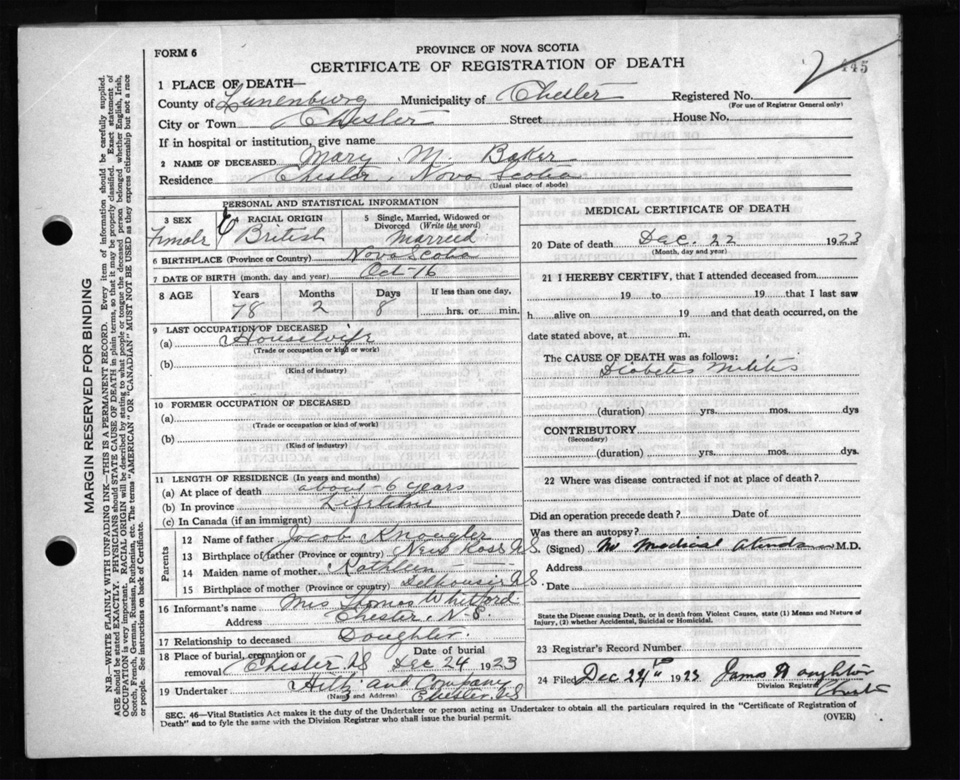 FORM 6
PROVINCE OF NOVA SCOTIA
CERTIFICATE OF REGISTRATION OF DEATH
445
1 PLACE OF DEATH—
County of Lunenburg Municipality of Chester Registered No.
(For use of Registrar General only)
City or Town Chester Street House No.
If in hospital or institution, give name
2 NAME OF DECEASED Mary M. Baker
Residence Chester, Nova Scotia
(Usual place of abode)
PERSONAL AND STATISTICAL INFORMATION
3 SEX
4 RACIAL ORIGIN
British
5 Single, Married, Widowed or Divorced (Write the word)
Married
6 BIRTHPLACE (Province or Country) Nova Scotia
7 DATE OF BIRTH (month, day and year) Oct-16
8 AGE Years Months Days If less than one day,
78 2 8 hrs. or min.
9 LAST OCCUPATION OF DECEASED
(a) Housewife
(Trade or occupation or kind of work)
(b)
(Kind of industry)
10 FORMER OCCUPATION OF DECEASED
(a)
(Trade or occupation or kind of work)
(b)
(Kind of industry)
11 LENGTH OF RESIDENCE (In years and months)
(a) At place of death about 6 years
(b) In province Lifetime
(c) In Canada (if an immigrant)
Parents
12 Name of father Jacob
13 Birthplace of father (Province or country) New Ross N.S.
14 Maiden name of mother Kathleen
15 Birthplace of mother (Province or country) Dalhousie N.S.
16 Informant's name Mrs Thomas Whitford
Address Chester, N-S
17 Relationship to deceased Doughter.
18 Place of burial, cremation or removal Chester NS Date of burial Dec 24 1923
19 Undertaker Hiltz and Company
(Name and Address) Chester N.S
MEDICAL CERTIFICATE OF DEATH
20 Date of death Dec. 22 1923
(Month, day and year)
21 I HEREBY CERTIFY, that I attended deceased from
19 to 19 that I last saw
h alive on 19 and that death occurred, on
date stated above, at m.
The CAUSE OF DEATH was as follows:
Diabetes Militis
(duration) yrs. mos. dys
CONTRIBUTORY
(Secondary)
(duration) yrs. mos. dys.
22 Where was disease contracted if not at place of death?
Did an operation precede death? Date of
Was there an autopsy?
(Signed) No Medical M.D.
Address
Date
State the Disease causing Death, or in death from Violent Causes, state (1) Means and Nature of Injury, (2) whether Accidental, Suicidal or Homicidal.
23 Registrar's Record Number
24 Filed Dec 1923 James
Division Registrar
SEC. 46—Vital Statistics Act makes it the duty of the Undertaker or person acting as Undertaker to obtain all the particulars required in the "Certificate of Registration of
Death" and to fyle the same with the Division Registrar who shall issue the burial permit.
(OVER)
MARGIN RESERVED FOR BINDING
N.B.—WRITE PLAINLY WITH UNFADING INK—THIS IS A PERMANENT RECORD. Every item of information should be carefully supplied.
AGE should be stated EXACTLY. PHYSICIANS should STATE CAUSE OF DEATH in plain terms, so that it may be properly classified. Exact statement of
OCCUPATION is very important. RACIAL ORIGIN will be described by stating to what people or tongue the deceased person belonged whether English, Irish,
Scotch, French, German, Russian, Ruthenian, etc. The terms "AMERICAN" OR "CANADIAN" MUST NOT BE USED as they express citizenship but not a race
or people. See instructions on back of Certificate.